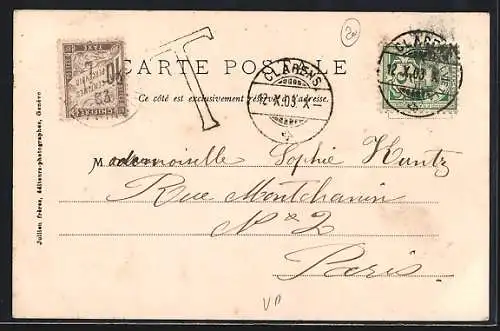 20
T
CARTE POSTALE
Ce côté est exclusivement réservé à l'adresse.
CLARENS
12.X.03.X
CLARENS
12.X.03.X
10
CHIFFRE TAXE
Mademoiselle Sophie Kuntz
Rue Montchanin
No 2
Paris
VD
Jullien frères, éditeurs-photographes, Genève